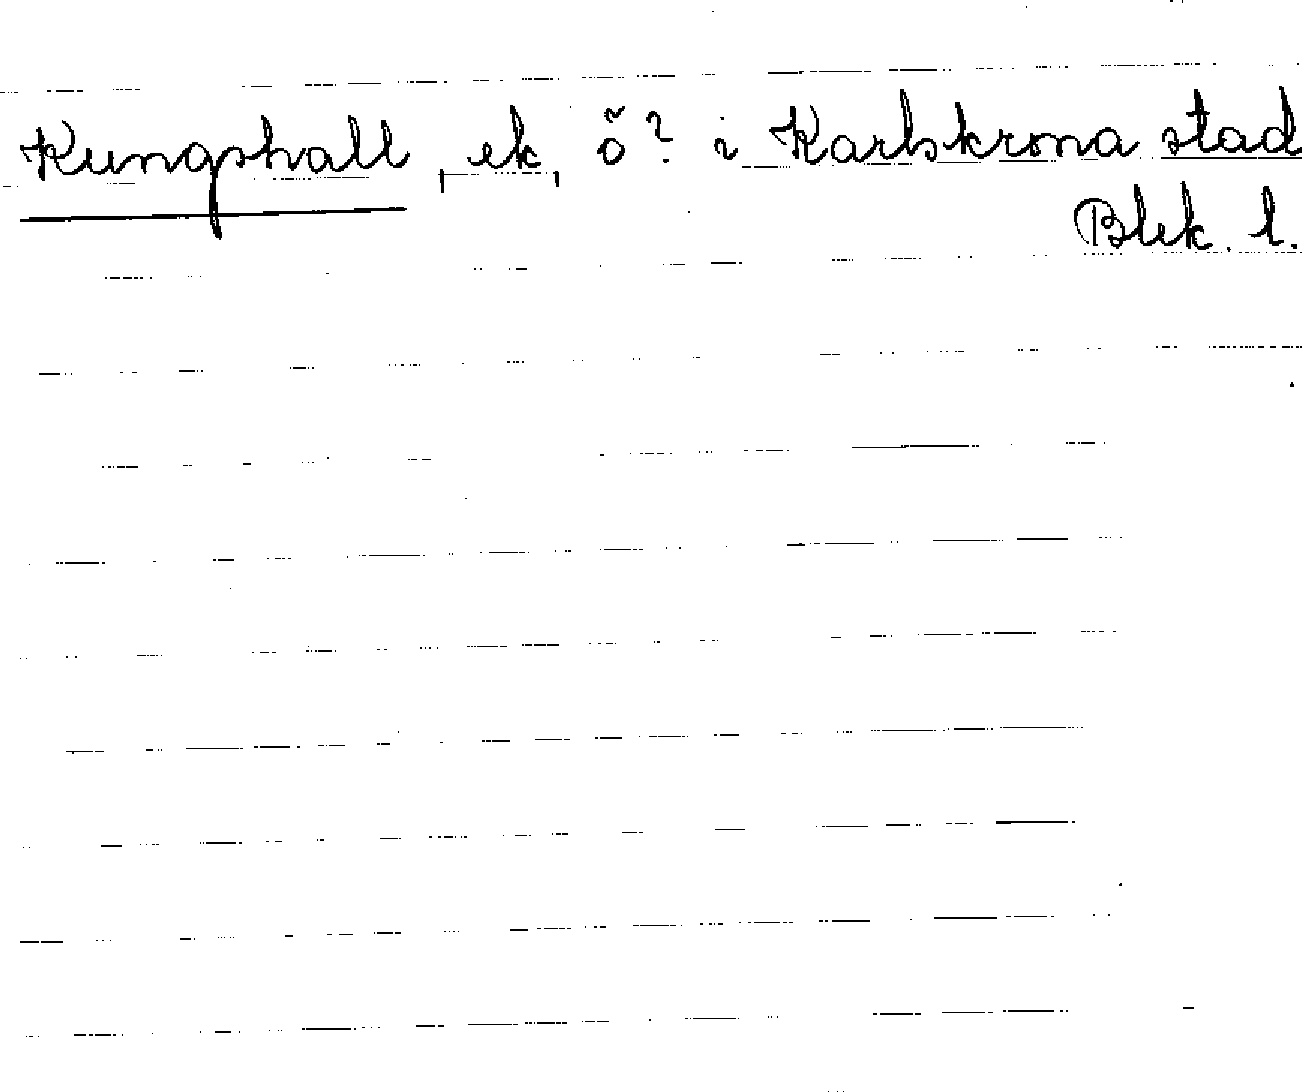 Kungshall, ek, ö? i Karlskrona stad
Blek. l.